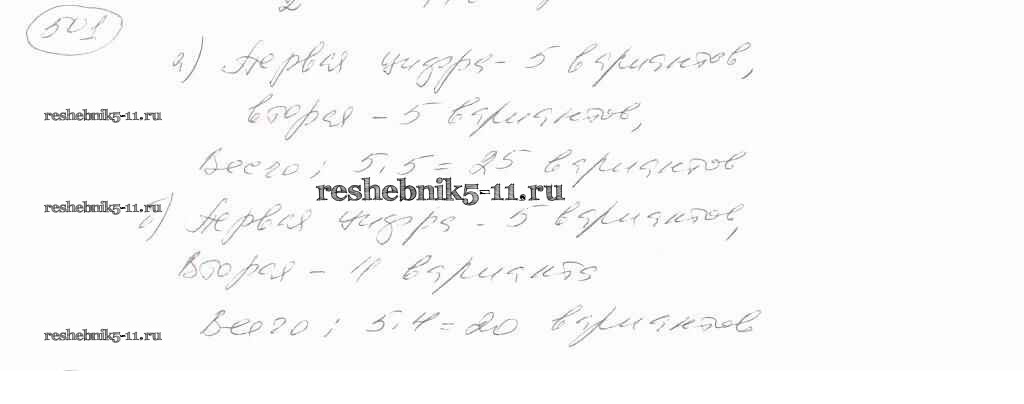 501
а) Первая цифра - 5 вариантов,
reshebnik5-11.ru
вторая - 5 вариантов,
Всего: 5·5 = 25 вариантов
reshebnik5-11.ru
reshebnik5-11.ru
б) Первая цифра - 5 вариантов,
Вторая - 4 варианта
Всего: 5·4 = 20 вариантов
reshebnik5-11.ru